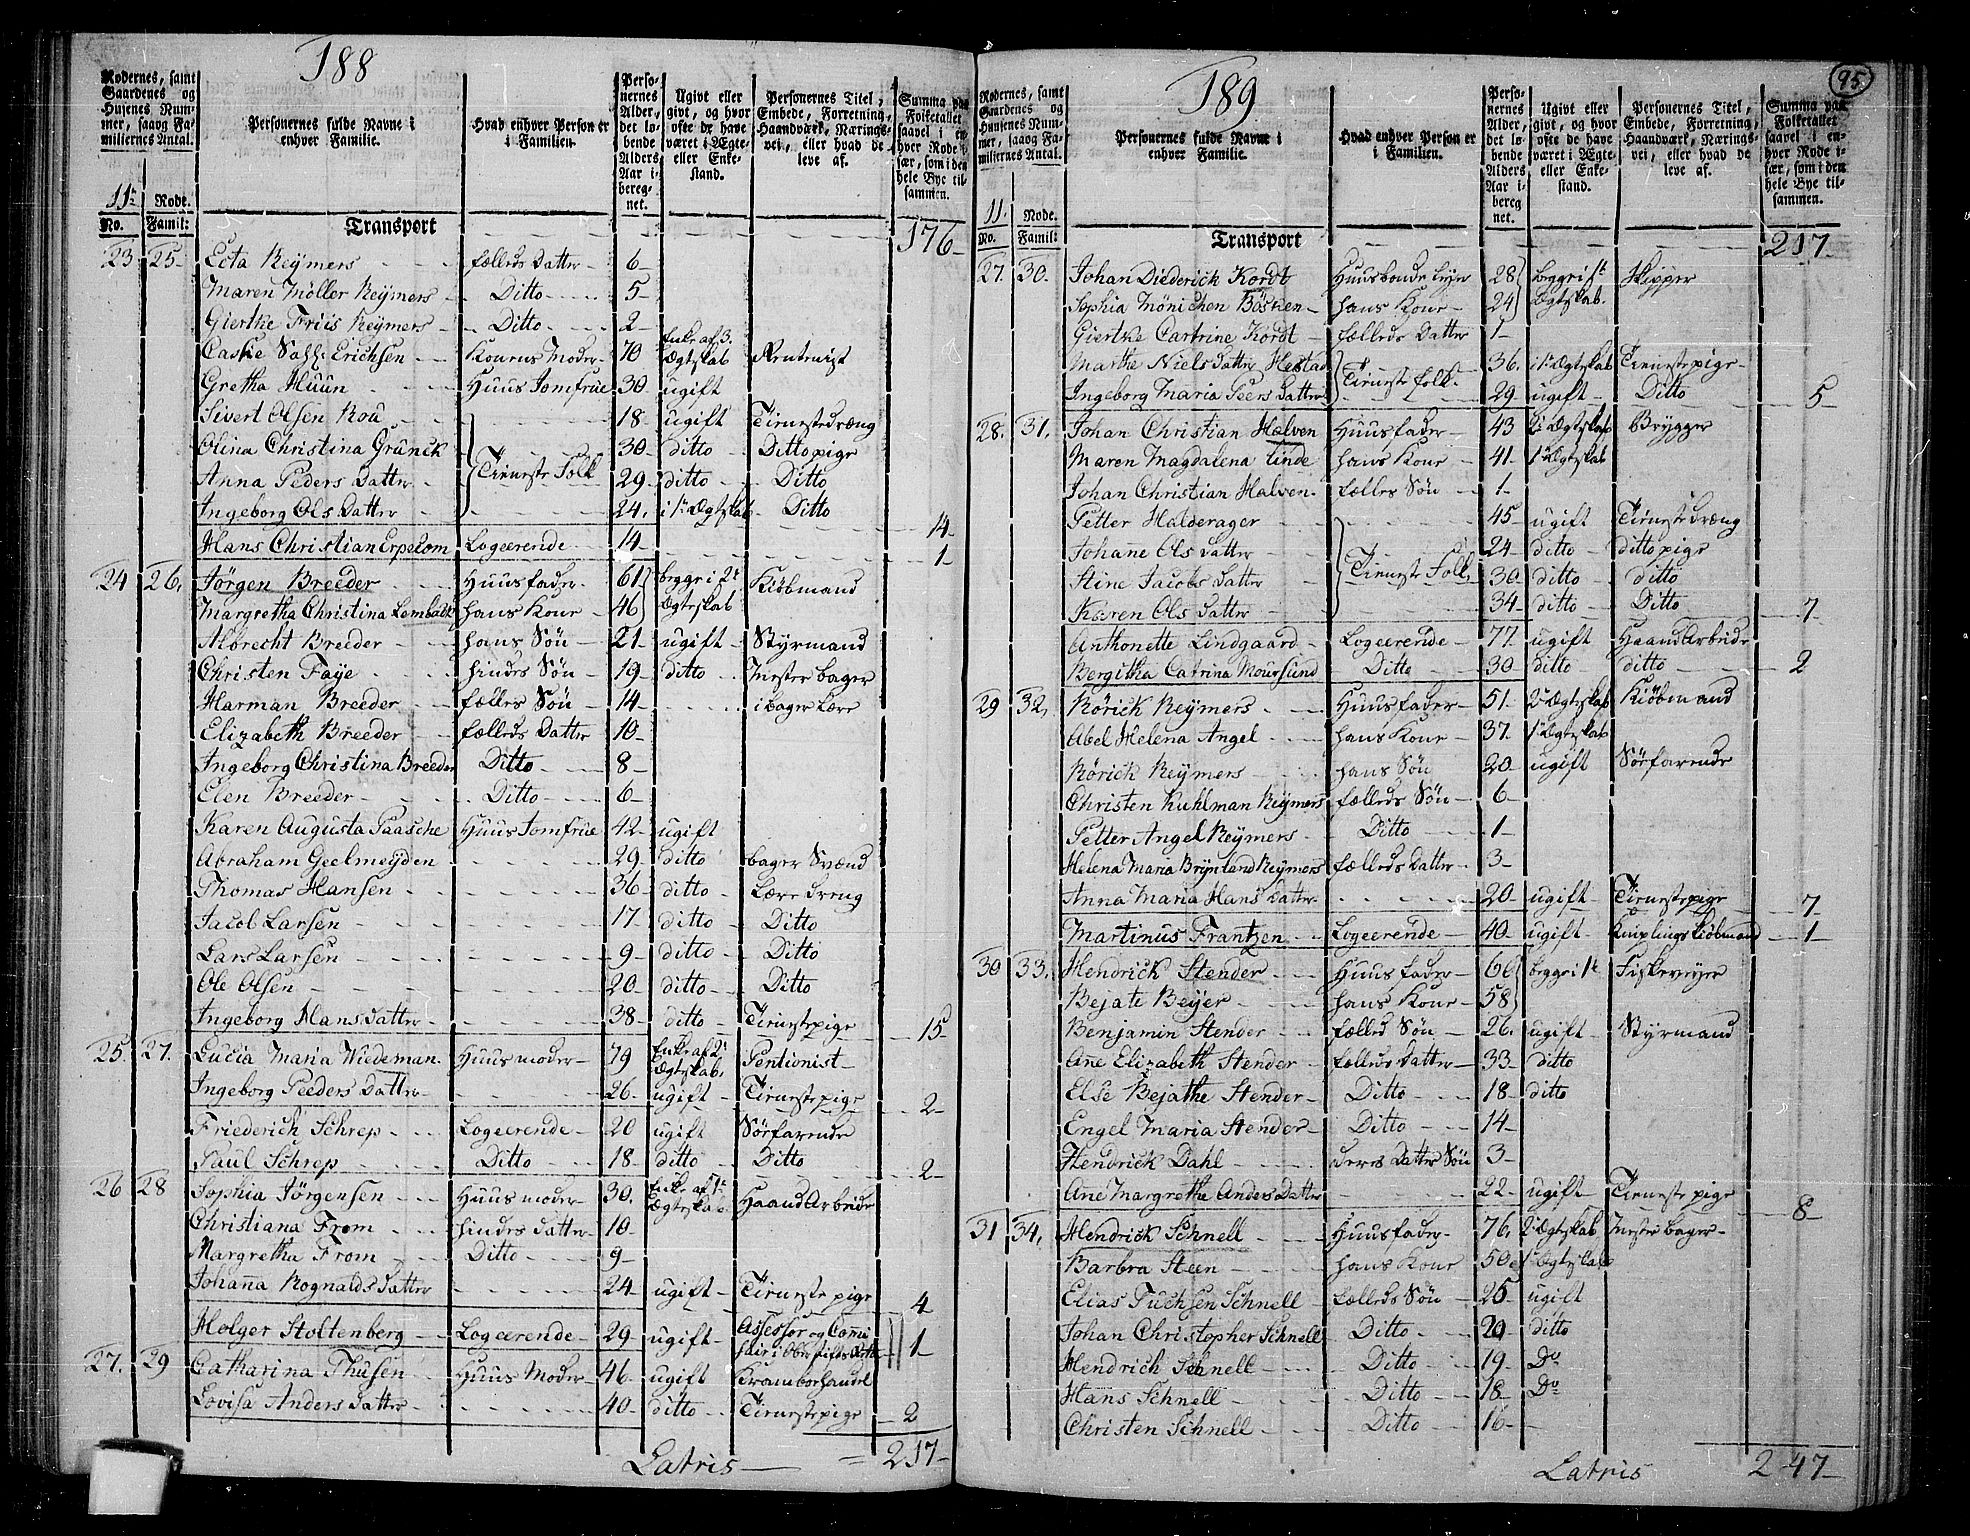 188
Rodernes, samt Gaardenes og Husenes Nummer, saavg Familiernes Antal.
Personernes fulde Navne i enhver Familie.
Hvad enhver Person er i Familien.
Personernes Alder, det løbende Alders Aar iberegnet.
Ugivt eller givt, og hvor ofte de have været i Ægte- eller Enkestand.
Personernes Titel, Embede, Forretning, Haandværk, Næringsvei, eller hvad de leve af.
Summa paa Folketallet saavel i enhver Rode især, som i den hele Bye tilsammen.
11te Rode.
No. Famil: Transport 176
23 25 Ecta Reÿmers fælleds Datter 6
Maren Möller Reÿmers Ditto 5
Giertke Friis Reÿmers Ditto 2
Caske Sass: Erichsen Konens Moder 70 Enke af 3. Ægtskab Rentenist
Gretha Huun Huus Jomfrue 30 ugift
Sivert Olsen Roä 18 ugift Tienestedræng
Olina Christina Grünck 30 ditto Ditto pige
Anna Peders Datter Tieneste Folk 29 ditto Ditto
Ingeborg Ols Datter 24. i 1te Ægtskab Ditto 14
Hans Christian Erpecom Logeerende 14 1
24 26. Jörgen Breeder Huusfader 61 begge i 2t Ægtskab Kiöbmand
Margretha Christina Lembach hans Kone 46
Albrecht Breeder hans Sön 21 ugift Styrmand
Christen Faÿe hindes Sön 19 ditto Mester bager
Harman Breeder fælleds Sön 14 i bager Lære
Elizabeth Breeder fælleds Datter 10
Ingeborg Christina Breeder Ditto 8
Elen Breeder Ditto 6
Karen Augusta Paasche Huus Jomfrue 42 ugift
Abraham Geelmeÿden 29 ditto bager Svænd
Thomas Hansen 36 ditto Lære dreng
Jacob Larsen 17 ditto Ditto
Lars Larsen 9 ditto Ditto
Ole Olsen 20 ditto Ditto
Ingeborg Hans datter 38 ditto Tieneste pige 15
25. 27. Lucia Maria Wiedeman Huus moder 79 Enke af 2t Ægtskab. Pentionist
Ingeborg Peeders Datter 26 ugift Tieneste pige 2
Friederich Schrep Logeerende 20 ugift Sörfarende
Paul Schrep Ditto 18 ditto Ditto 2
26 28 Sophia Jörgensen Huus moder 30. Enke af 1te Ægtskab HaandArbeide
Christiana From hindes datter 10
Margretha From Ditto 9
Johanna Rognalds Datter 24 ugift Tieneste pige 4
Holger Stoltenberg Logeerende 29 ugift Assessor og 1
27. 29 Catharina Thuesen Huus Moder 46 ugift Kramborhandel
Lovisa Anders Datter 40 ditto Tieneste pige 2
Latris 217
95
189
Rodernes, samt Gaardenes og Husenes Nummer, saavg Familiernes Antal.
Personernes fulde Navne i enhver Familie.
Hvad enhver Person er i Familien.
Personernes Alder, det løbende Alders Aar iberegnet.
Ugivt eller givt, og hvor ofte de have været i Ægte- eller Enkestand.
Personernes Titel, Embede, Forretning, Haandværk, Næringsvei, eller hvad de leve af.
Summa paa Folketallet saavel i enhver Rode især, som i den hele Bye tilsammen.
11. Rode.
No. Famil: Transport 217
27. 30. Johan Diederick Kordt Huusbonde 28 begge i 1te Ægtskab. Skipper
Sophia Mönichen Böschen hans Kone 24
Giertke Cartrine Kordt fælleds Datter 1
Marthe Niels Datter Hestad Tieneste folk 36. i 1te Ægtskab Tieneste pige
Ingeborg Maria Peers Datter 29 ugift Ditto 5
28. 31. Johan Christian Halven Huusfader 43 2 Ægtskab Brygger
Maren Magdalena Linde hans Kone 41 1te Ægtskab
Johan Christian Halven fælles Sön 1
Petter Halderager 45 ugift Tienestedræng
Johane Ols datter Tieneste Folk 24 ditto ditto pige
Stine Jacobs Datter 30 ditto ditto
Karen Ols datter 34 ditto Ditto 7
Anthonette Lindgaard Logeerende 77 ugift HaandArbeide
Bergitha Catrina Moursund Ditto 30 ditto ditto 2
29 32. Rörick Reÿmers Huusfader 51. 2 Ægtskab Kiöbmand
Abel Helena Angel hans Kone 37. 1te Ægtskab
Rörick Reÿmers hans Sön 20 ugift Sörfarende
Christen Kuhlman Reÿmers fælleds Sön 6
Petter Angel Reÿmers Ditto 1
Helena Maria Brÿnland Reÿmers fælleds Datter 3
Anna Maria Hans Datter 20 ugift Tieneste pige 7
Martinus Frantzen Logeerende 40 ugift Kniplings kiöbmand 1
30 33. Hendrick Stender Huus fader 60 begge i 1te Fiskeveÿer
Bejate Beÿer hans Kone 58
Benjamin Stender fælled Sön 26. ugift Styrmand
Ane Elizabeth Stender fælleds Datter 33 ditto
Else Bejathe Stender Ditto 18 ditto
Engel Maria Stender Ditto 14
Hendrick Dahl deres Datter Sön 3
Ane Margrethe Anders Datter 22 ugift Tieneste pige 8
31 34. Hendrick Schnell Huusfader 76. 2 Ægtskab Mester bager
Barbra Steen hans Kone 50 1 Ægtskab
Elias Tuchsen Schnell fælleds Sön 25 ugift
Johan Christopher Schnell Ditto 20 ditto
Hendrich Schnell Ditto 19 Do
Hans Schnell Ditto 18 Do
Christen Schnell Ditto 16
Latris 247